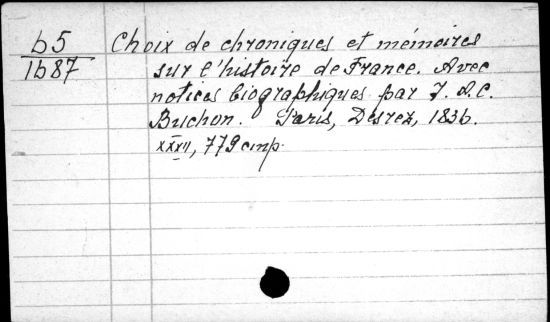 b5 Choix de chroniques et mémoires
1b87 sur l'histoire de France. Avec
notices biographiques par J. A. C.
Buchon. Paris, Desrez, 1836.
xxxii, 779 стр.